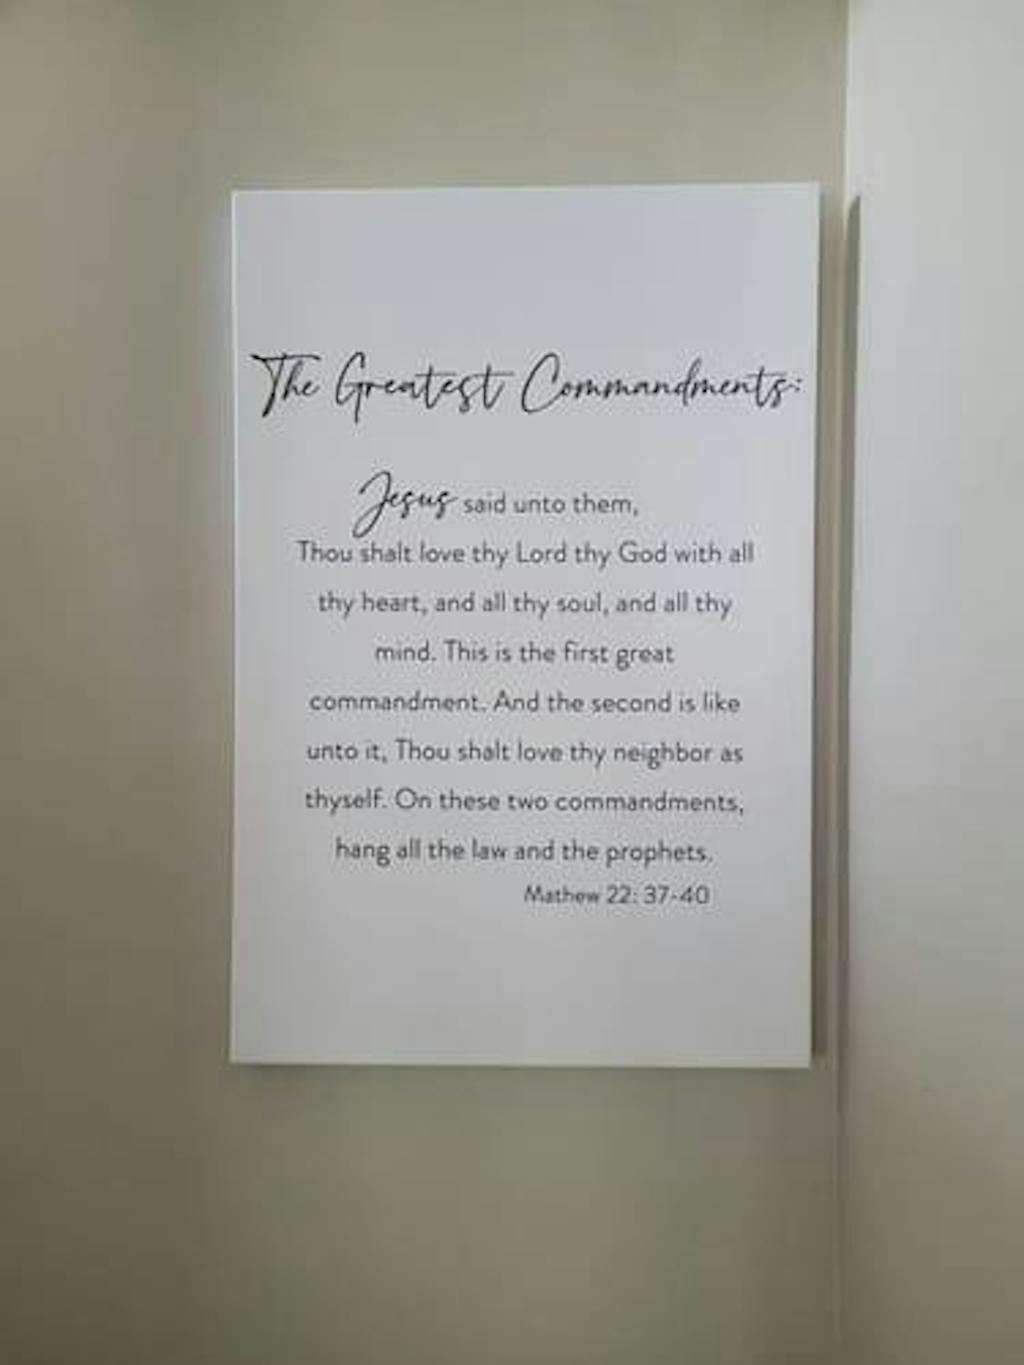 The Greatest Commandments:
Jesus said unto them,
Thou shalt love thy Lord thy God with all
thy heart, and all thy soul, and all thy
mind. This is the first great
commandment. And the second is like
unto it, Thou shalt love thy neighbor as
thyself. On these two commandments,
hang all the law and the prophets.
Mathew 22: 37-40